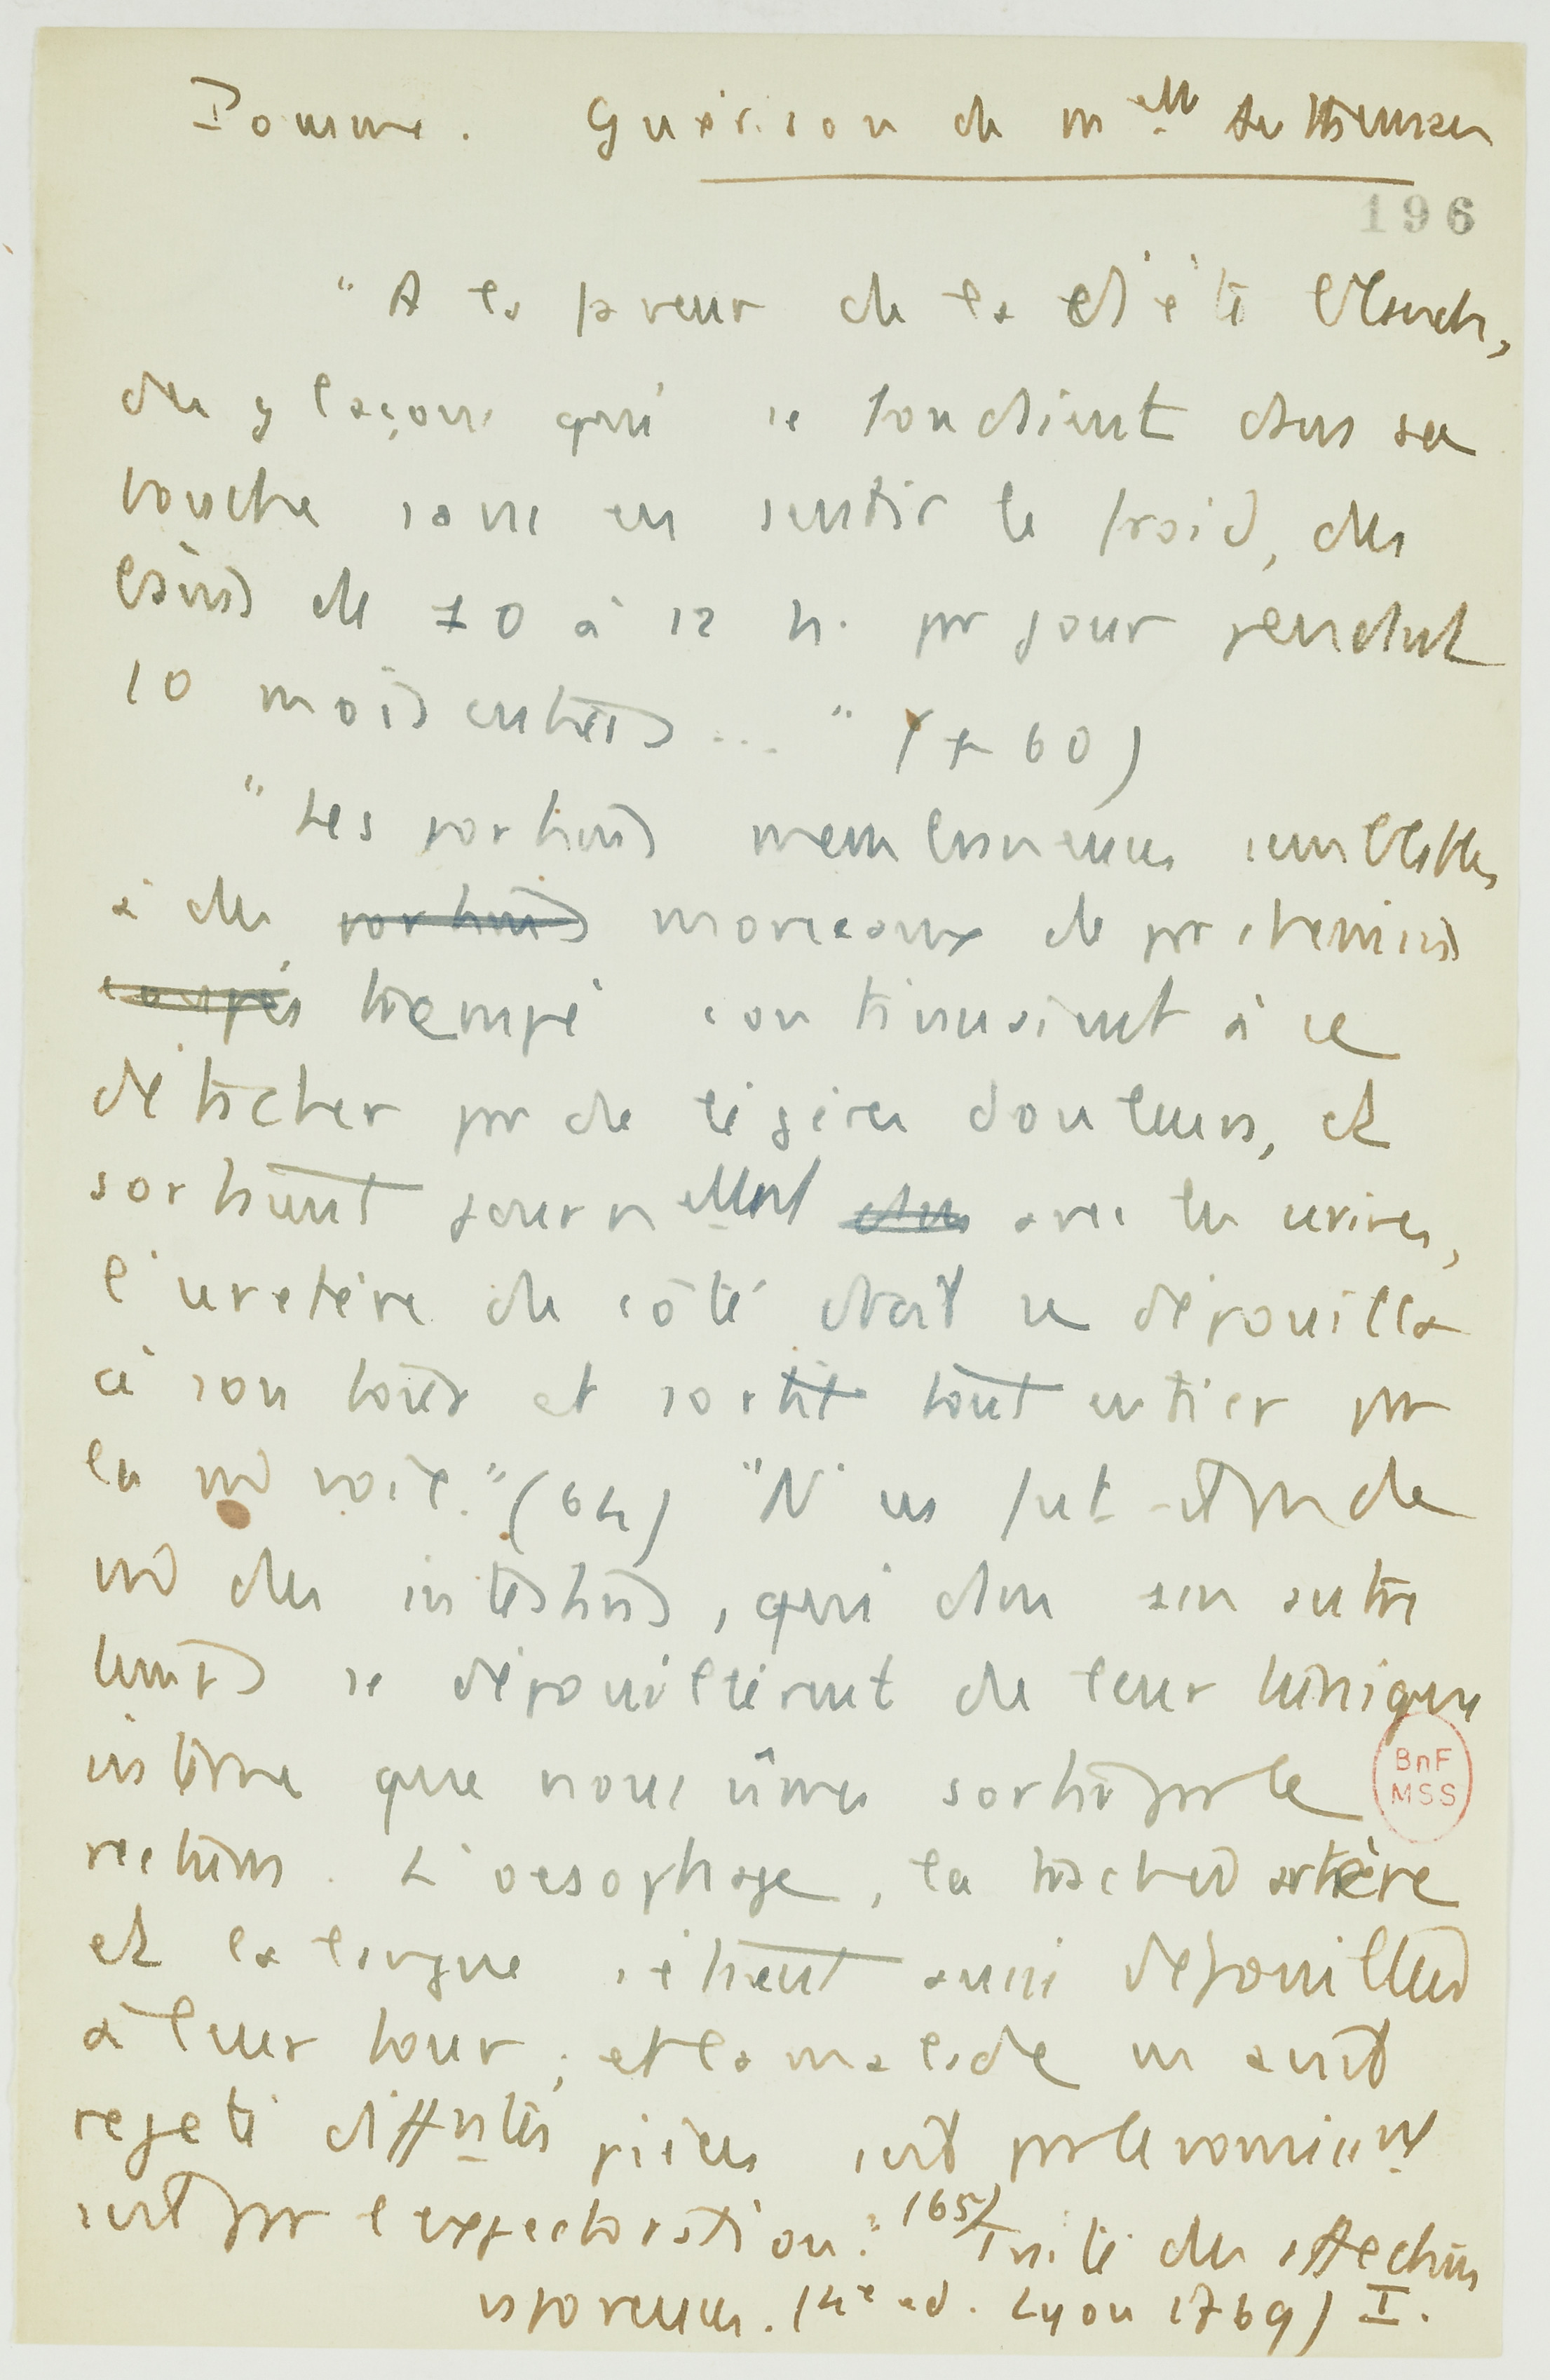 Pomme. Guérison de Melle
196
"A la faveur de la diète blanche,
des glaçons qui se fondaient dans sa
bouche sans en sentir le froid, des
bains de 10 à 12 h. par jour pendant
10 mois entiers ... " (p 60)
"Les portions membraneuses semblables
à des portions morceaux de parchemins
coupés trempé continuaient à se
détacher par de légères douleurs, et
sortaient journellement dans avec les urines,
l'uretère du côté droit se dépouilla
à son tour et sortit tout entier par
la m voie." (64) "N' en fut
des intestins, qui dans un autre
temps se dépouillèrent de leur tunique
interne que nous vîmes sortir par le
rectum. L'oesophage, la trachée artère
et la langue s'étaient aussi dépouillées
à leur tour ; et la malade en avait
rejeté différentes pièces soit par le vomissement
soit par l'expectoration." (65) Traité des affections
vaporeuses. (4e ed. Lyon 1769) I.
BnF
MSS